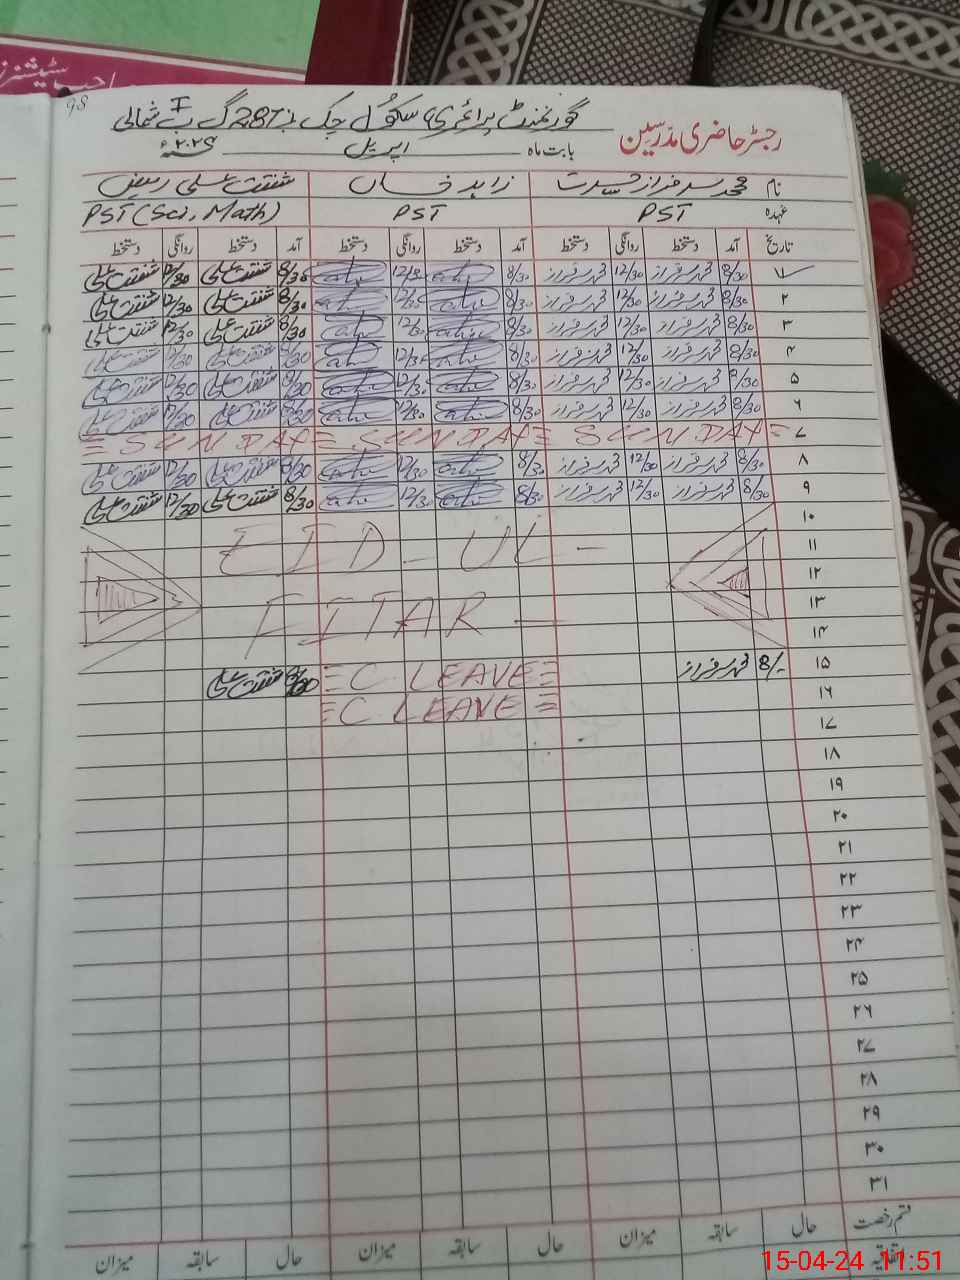 98
گورنمنٹ پرائمری سکول چک نمبر 287 گ ب I شمالی
رجسٹر حاضری مدرسین
بابت ماہ اپریل ۲۰۲۴ء
نام محمد سرفراز زاہد خان شفقت علی
عہدہ PST PST PST (Sci, Math)
تاریخ آمد دستخط روانگی دستخط آمد دستخط روانگی دستخط آمد دستخط روانگی دستخط
۱ 8/30 محمد سرفراز 12/30 محمد سرفراز 8/30 12/30 8/30 شفقت علی 12/30 شفقت علی
۲ 8/30 محمد سرفراز 12/30 محمد سرفراز 8/30 12/30 8/30 شفقت علی 12/30 شفقت علی
۳ 8/30 محمد سرفراز 12/30 محمد سرفراز 8/30 12/30 8/30 شفقت علی 12/30 شفقت علی
۴ 8/30 محمد سرفراز 12/30 محمد سرفراز 8/30 12/30 8/30 شفقت علی 12/30 شفقت علی
۵ 8/30 محمد سرفراز 12/30 محمد سرفراز 8/30 12/30 8/30 شفقت علی 12/30 شفقت علی
۶ 8/30 محمد سرفراز 12/30 محمد سرفراز 8/30 12/30 8/30 شفقت علی 12/30 شفقت علی
۷ SUNDAY SUNDAY SUNDAY
۸ 8/30 محمد سرفراز 12/30 محمد سرفراز 8/30 12/30 8/30 شفقت علی 12/30 شفقت علی
۹ 8/30 محمد سرفراز 12/30 محمد سرفراز 8/30 12/30 8/30 شفقت علی 12/30 شفقت علی
۱۰
۱۱ EID - UL -
۱۲
۱۳ FITAR -
۱۴
۱۵ 8/- محمد سرفراز C. LEAVE 8/30 شفقت علی
۱۶ C. LEAVE
۱۷
۱۸
۱۹
۲۰
۲۱
۲۲
۲۳
۲۴
۲۵
۲۶
۲۷
۲۸
۲۹
۳۰
۳۱
قسم رخصت حال سابقہ میزان حال سابقہ میزان حال سابقہ میزان
اتفاقیہ
15-04-24 11:51